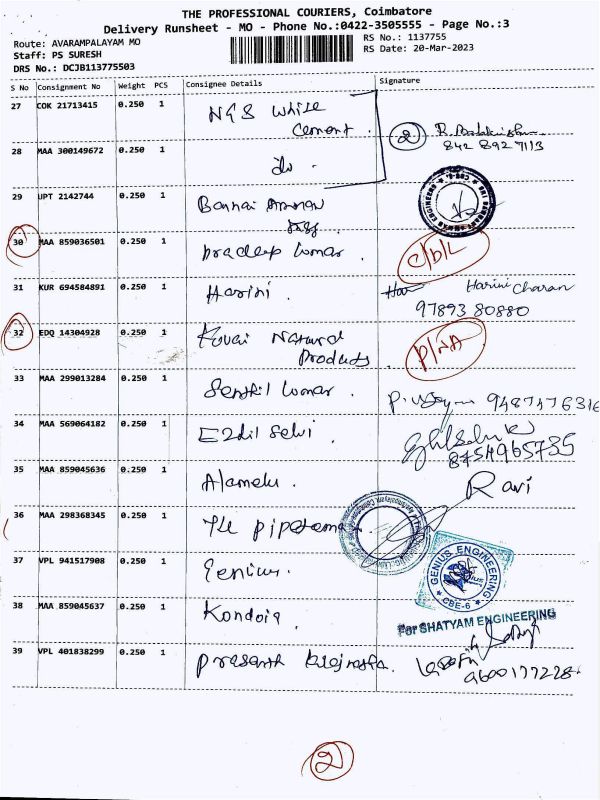 THE PROFESSIONAL COURIERS, Coimbatore
Delivery Runsheet - MO - Phone No.:0422-3505555 - Page No.:3
Route: AVARAMPALAYAM MO
RS No.: 1137755
Staff: PS SURESH
RS Date: 20-Mar-2023
DRS No.: DCJB113775503
S No Consignment No Weight PCS Consignee Details Signature
27 COK 21713415 0.250 1 NGS White
Cement. 2
842 892 7113
28 MAA 300149672 0.250 1 do.
29 UPT 2142744 0.250 1 Bannai Amman
30 MAA 859036501 0.250 1 pradeep kumar. C/D/L
31 KUR 694584891 0.250 1 Harini. Harini Charan
97893 80880
32 EDQ 14304928 0.250 1 Kovai Natural
Products. P/NA
33 MAA 299013284 0.250 1 Senthil kumar. 9487476316
34 MAA 569064182 0.250 1 Ezhil Selvi.
8754965735
35 MAA 859045636 0.250 1 Alamelu. Ravi
36 MAA 298368345 0.250 1
37 VPL 941517908 0.250 1 Genius. GENIUS ENGINEERING
CBE-6
38 MAA 859045637 0.250 1
For SHATYAM ENGINEERING
39 VPL 401838299 0.250 1 Prasanth
9600177228
2